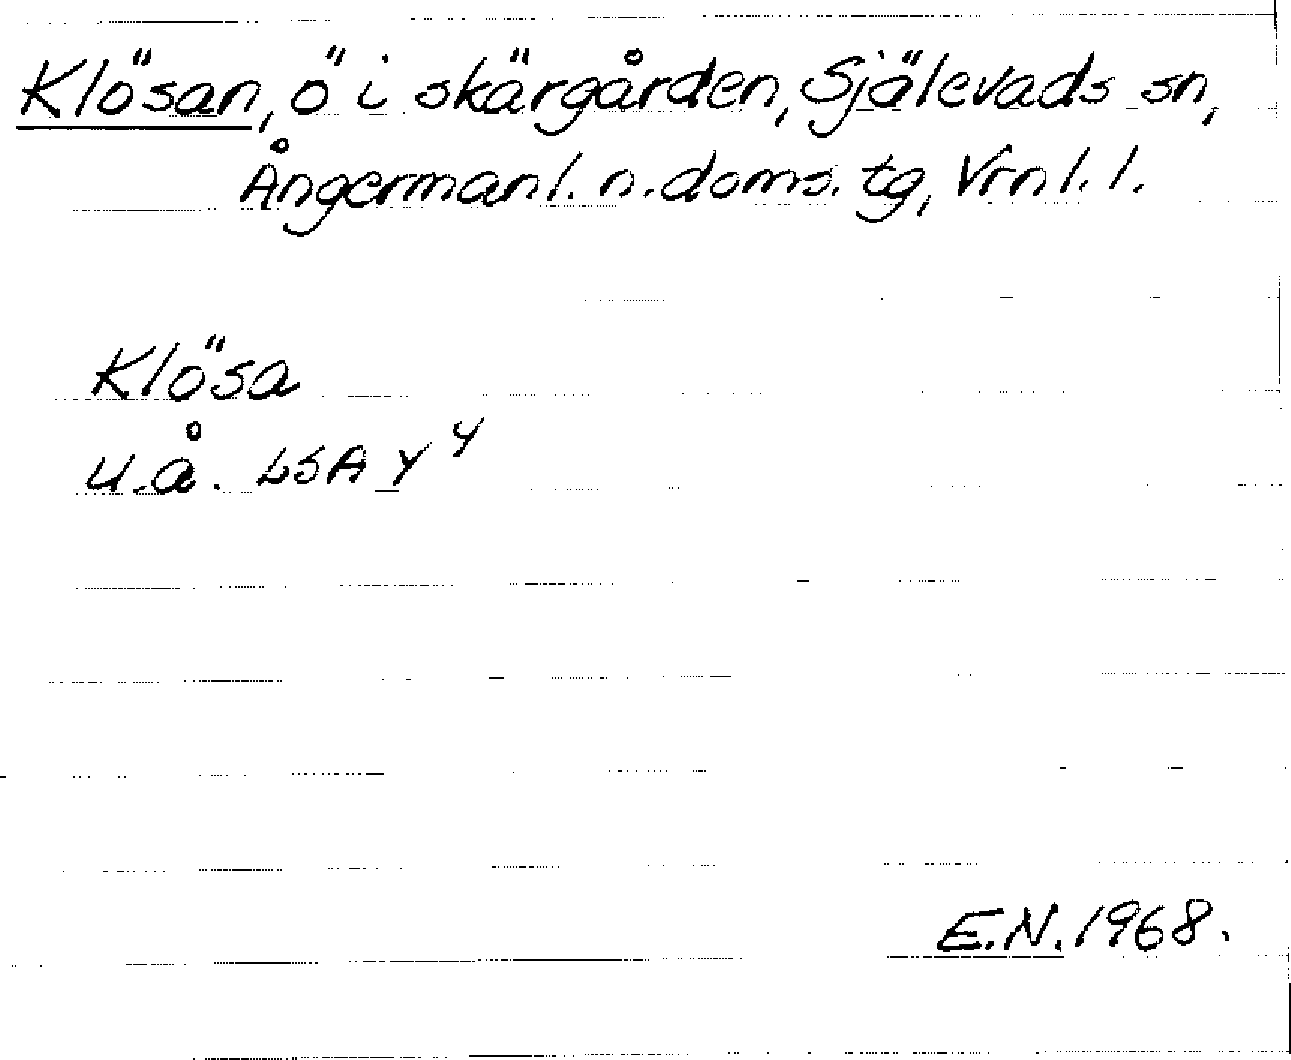 Klösan, ö i skärgården, Själevads sn,
Ångermanl. n. doms. tg, Vrnl. l.
Klösa
u.å. LSA Y 4
E.N. 1968.